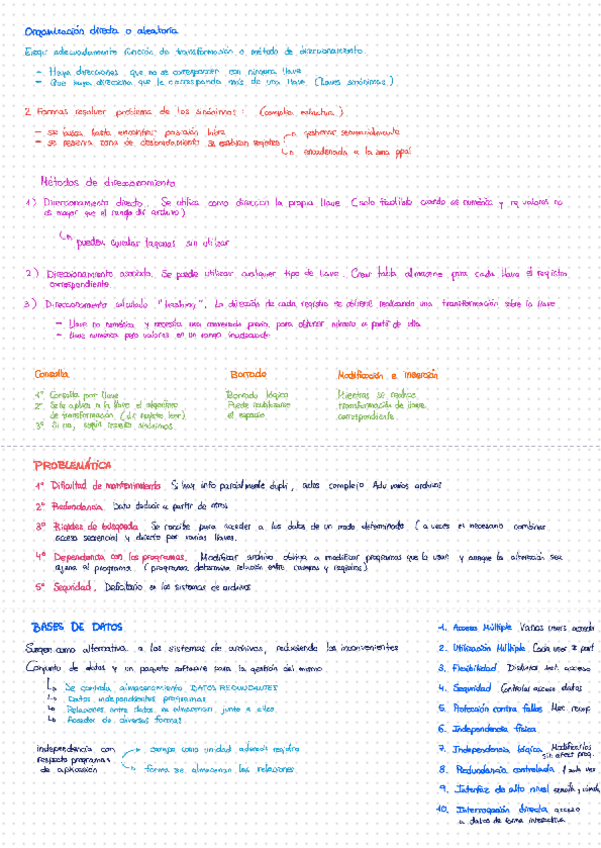 Organización directa o aleatoria
Elegir adecuadamente función de transformación o método de direccionamiento.
- Haya direcciones que no se correspondan con ninguna llave
- Que haya direccion que le corresponda más de una llave (llaves sinónimas)
2 Formas resolver problema de los sinónimos: (complica estructura)
- se busca hasta encontrar posición libre
- se reserva zona de desbordamiento se escriben registros
gestionar secuencialmente
encadenada a la zona ppal
Métodos de direccionamiento
1) Direccionamiento directo. Se utiliza como dirección la propia llave (solo factible cuando es numérica y rq valores no
es mayor que el rango del archivo)
pueden quedar lagunas sin utilizar
2) Direccionamiento asociado. Se puede utilizar cualquier tipo de llave. Crear tabla almacene para cada llave el registro
correspondiente.
3) Direccionamiento calculado "hashing". La dirección de cada registro se obtiene realizando una transformación sobre la llave
- Llave no numérica y necesita una conversión previa para obtener número a partir de ella
- Llave numérica pero valores en un rango inadecuado
Consulta
Borrado
Modificación e inserción
1º Consulta por llave
2º Se le aplica a la llave el algoritmo
de transformación
3º Si no, según sinónimos.
Borrado lógico
Puede reutilizarse
el espacio
Mientras se realice
transformación de llave
correspondiente.
PROBLEMÁTICA
1º Dificultad de mantenimiento Si hay info parcialmente dupli, actos complejo Adu varios archivos
2º Redundancia Dato deducir a partir de otros
3º Rigidez de búsqueda. Se concibe para acceder a los datos de un modo determinado (a veces es necesario combinar
acceso secuencial y directo por varias llaves.
4º Dependencia con los programas. Modificar archivo obliga a modificar programas que lo usan y aunque la alteración sea
ajena al programa (programa determina relación entre campos y registros)
5º Seguridad. Deficitario en los sistemas de archivos
BASES DE DATOS
Surgen como alternativa a los sistemas de archivos, reduciendo los inconvenientes
Conjunto de datos y un paquete software para la gestión del mismo
Se controla almacenamiento DATOS REDUNDANTES
Datos independientes programas
Relaciones entre datos se almacenan junto a ellos
Acceder de diversas formas
independencia con
respecto programas
de aplicación
campo como unidad además registro
forma se almacenan las relaciones
1. Acceso Múltiple Varios users acceda
2. Utilización Múltiple Cada user
3. Flexibilidad Distintos acceso
4. Seguridad Controlar acceso datos
5. Protección contra fallos Mec recup
6. Independencia física
7. Independencia lógica Modificarlos
sin efect prog.
8. Redundancia controlada
9. Interfaz de alto nivel
10. Interrogación directa acceso
a datos de forma interactiva